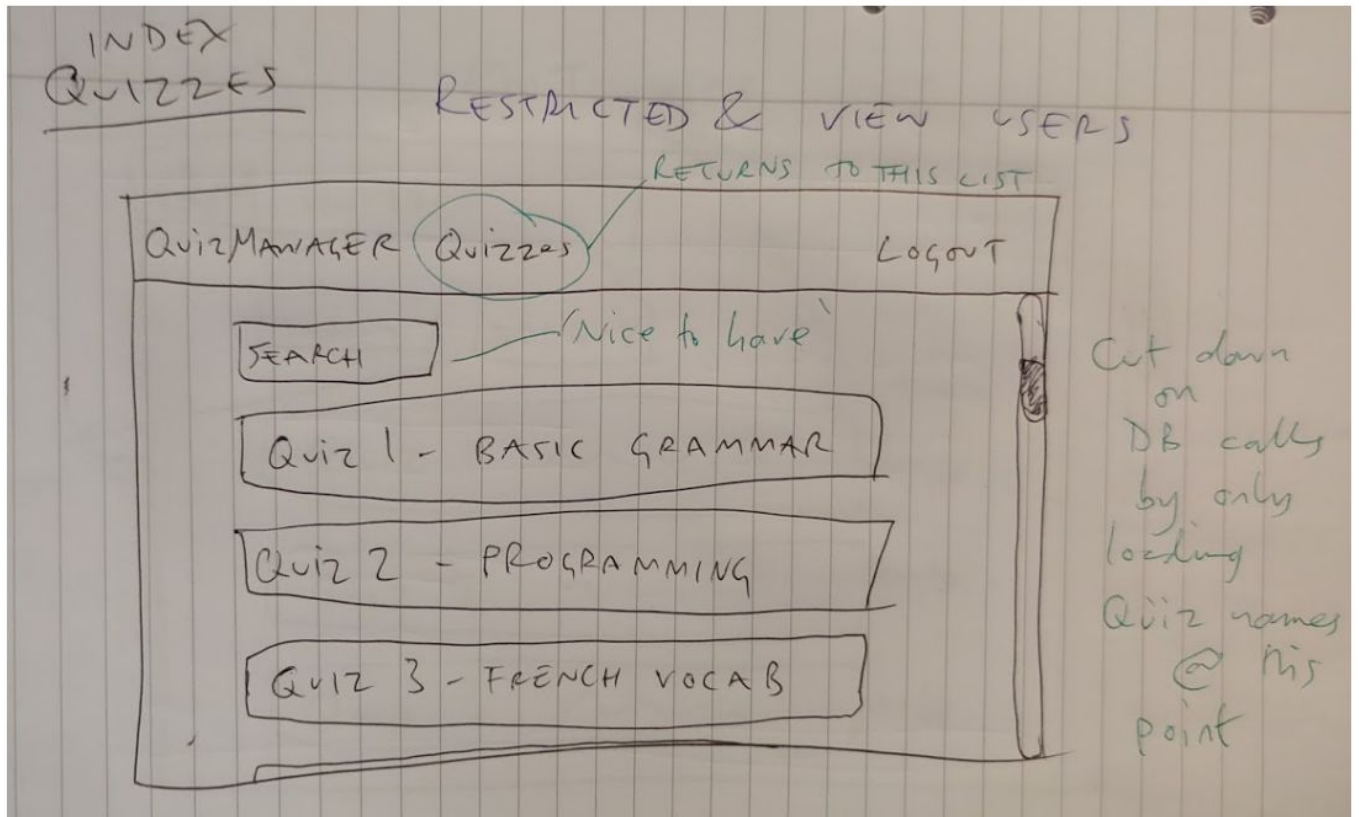 INDEX
QUIZZES
RESTRICTED & VIEW USERS
RETURNS TO THIS LIST
QuizMANAGER Quizzes LOGOUT
SEARCH
'Nice to have'
Quiz 1 - BASIC GRAMMAR
Quiz 2 - PROGRAMMING
QUIZ 3 - FRENCH VOCAB
Cut down
on
DB calls
by only
loading
Quiz names
@ this
point